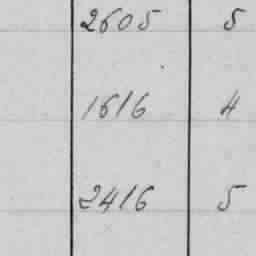 2605 5
1616 4
2416 5